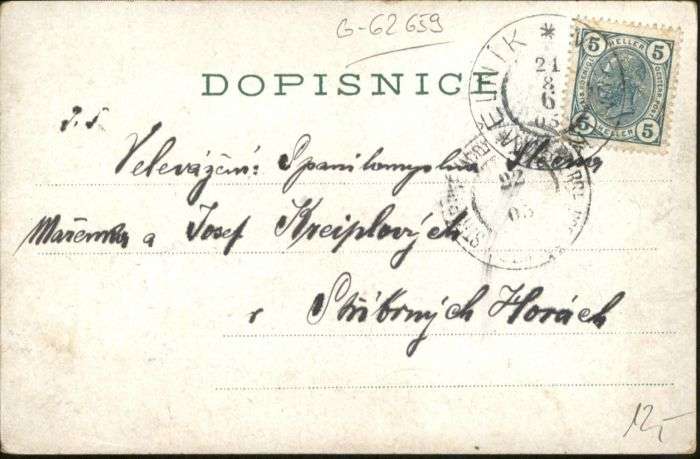 G-62659
DOPISNICE
MĚLNÍK
*
21
8
6
05
22
05
5 HELLER 5
5 HELLER 5
Velevážení: Spanilomyslná Slečna
Mařenka a Josef Kreiplových
v Stříbrných Horách
12,-